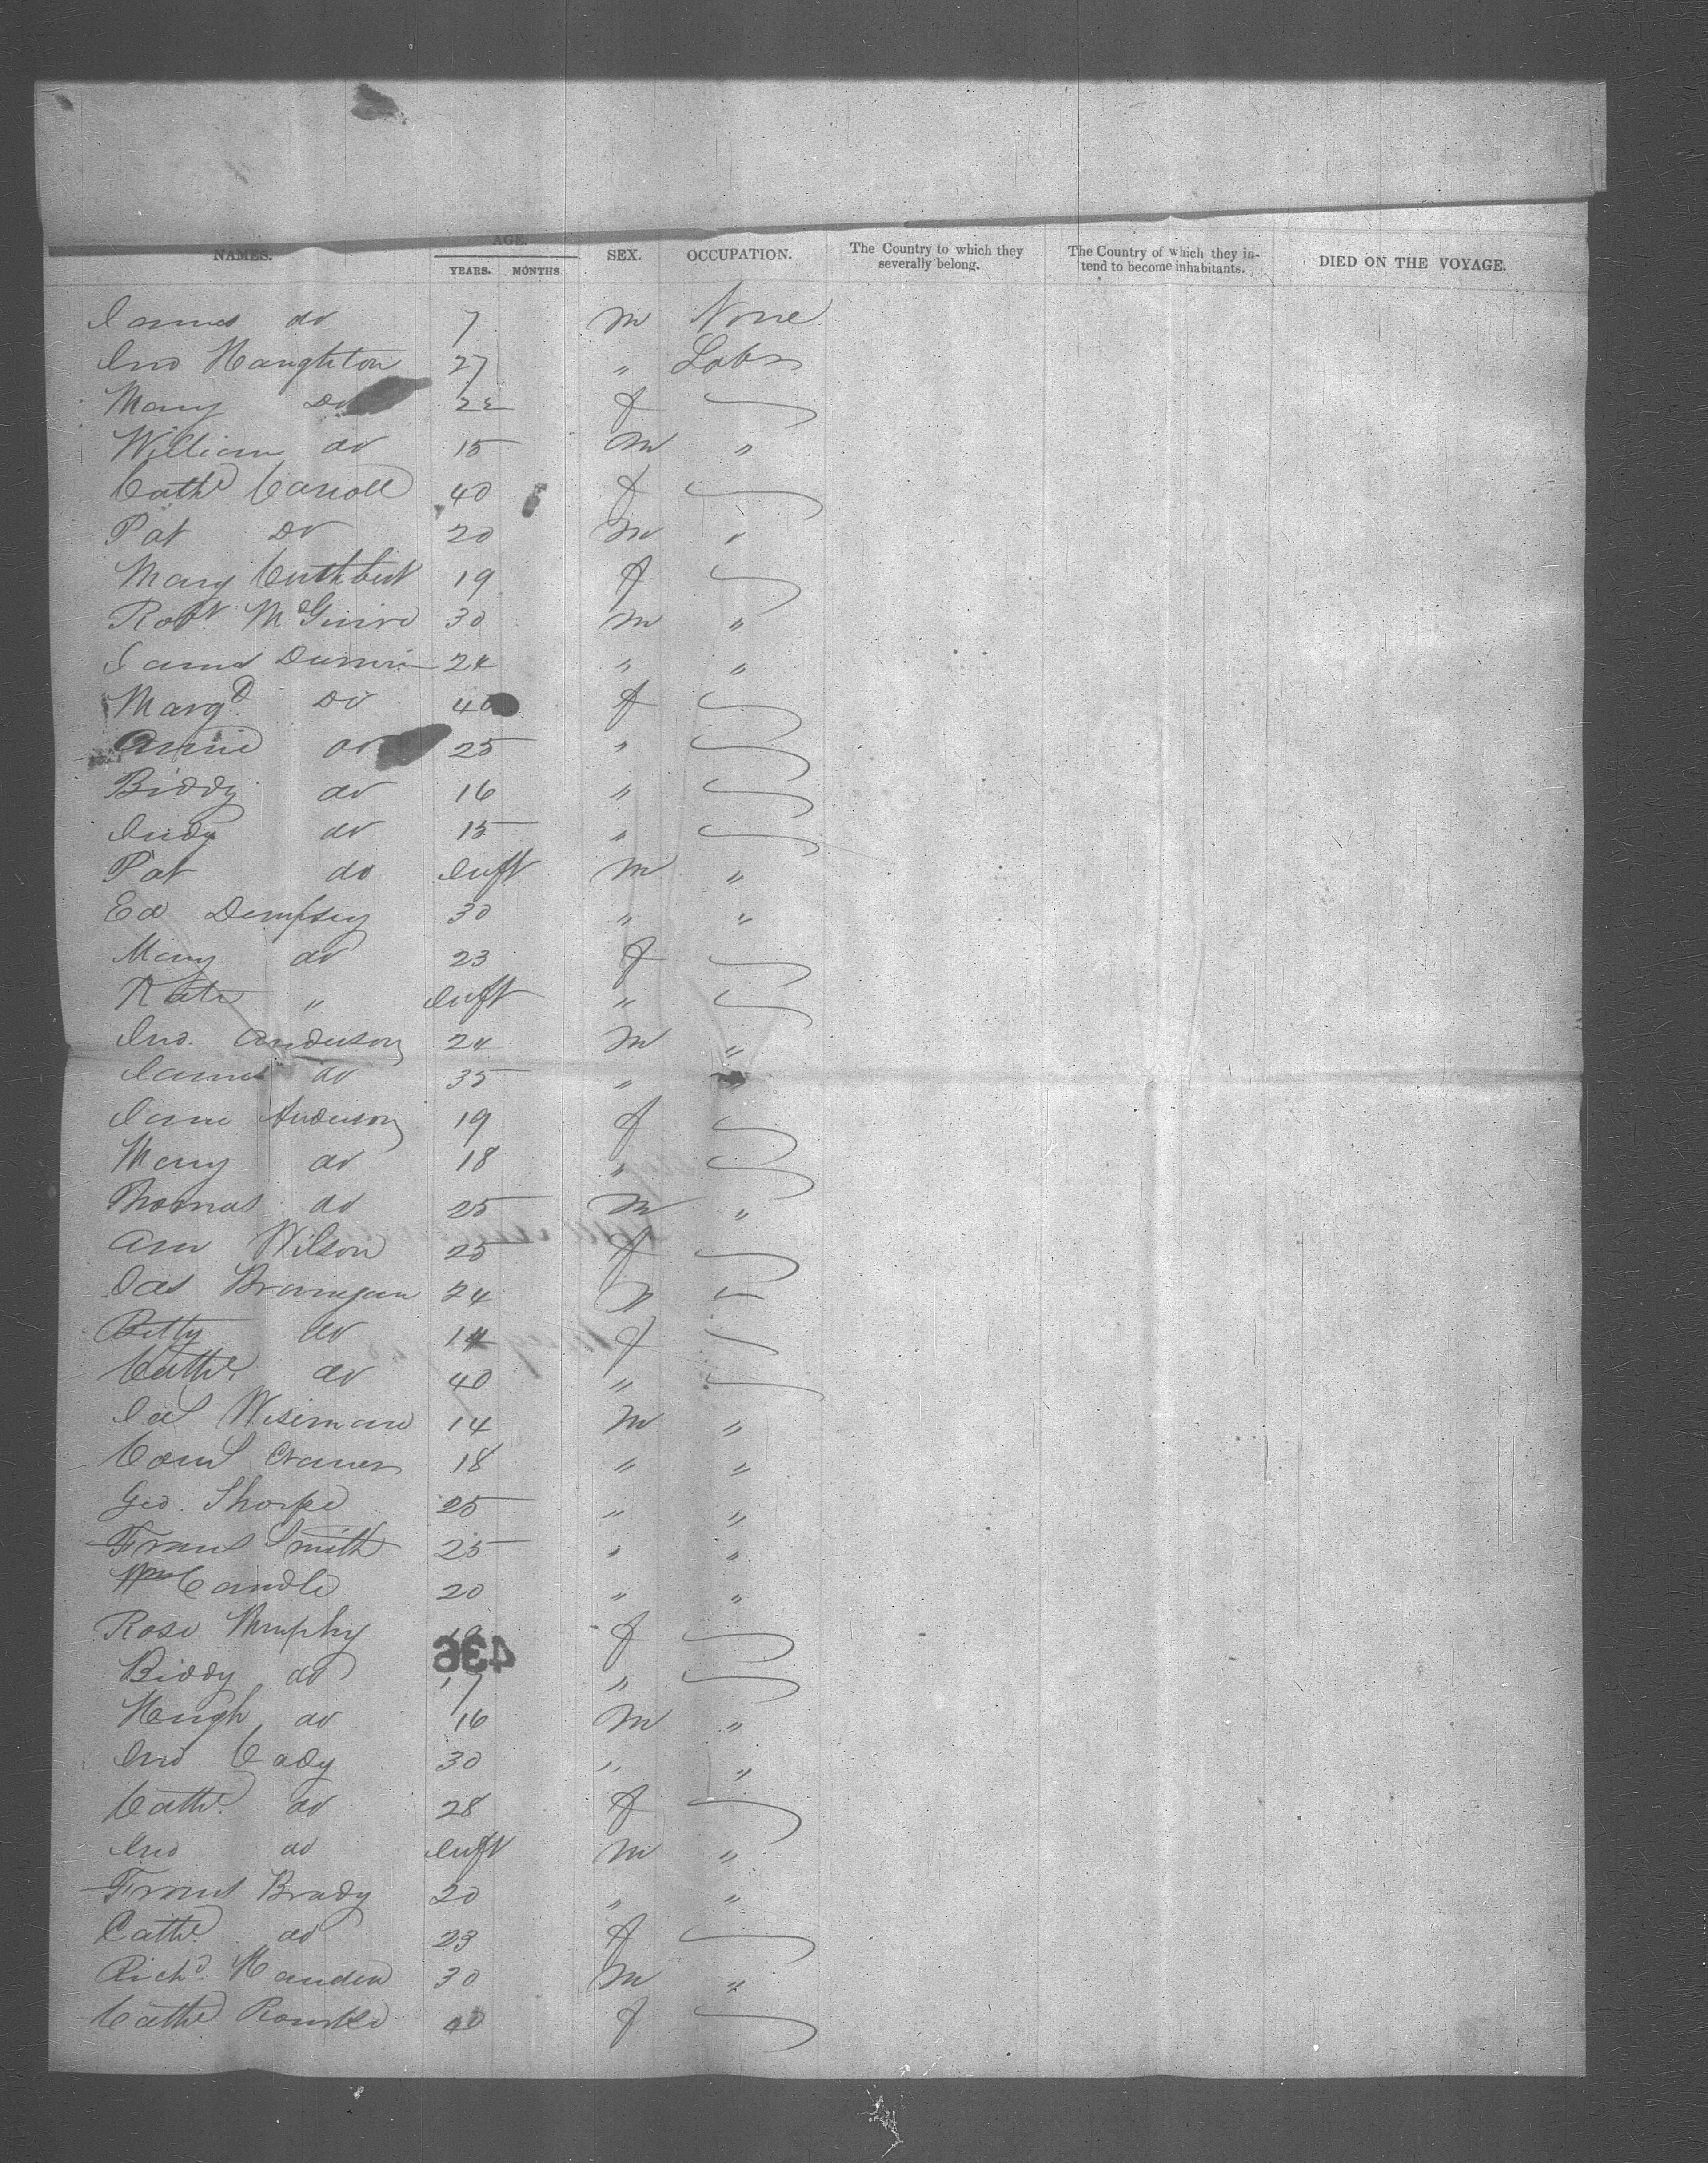 NAMES. AGE. YEARS. MONTHS SEX. OCCUPATION. The Country to which they severally belong. The Country of which they intend to become inhabitants. DIED ON THE VOYAGE.
James do 7 m None
Jno Haughton 27 " Labr
Mary Do 22 f
William do 15 m "
Cathe Carroll 40 f
Pat Do 20 m "
Mary Cuthbert 19 f
Robt McGuire 30 m "
James 24 " "
Margt Do 40 f
Annie do 25 "
Biddy do 16 "
Judy do 15 "
Pat do Inft m "
Ed Dempsey 30 " "
Mary do 23 f
Kate " Inft "
Jno. Anderson 24 m "
James do 35 " "
Jane Anderson 19 f
Mary do 18 "
Thomas do 25 m "
Ann Wilson 25 f
Jas Branigan 24 m
Betty do 14 f
Cathe do 40 "
Jas Wiseman 14 m "
18 " "
Geo. Thorpe 25 " "
Frans Smith 25 " "
Wm Candle 20 " "
Rose Murphy f
436
Biddy do 17 "
Hugh do 16 m "
Jno Cady 30 " "
Cathe. do 28 f
Jno do Inft m "
Frans Brady 20 " "
Cathe do 23 f
Richd. 30 m "
Cathe Rourke 40 f